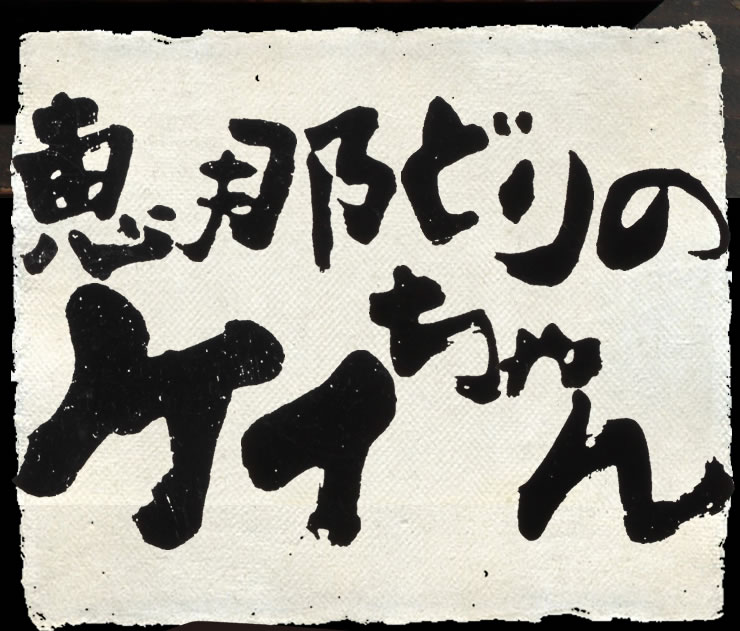 恵那どりの
ケイちゃん